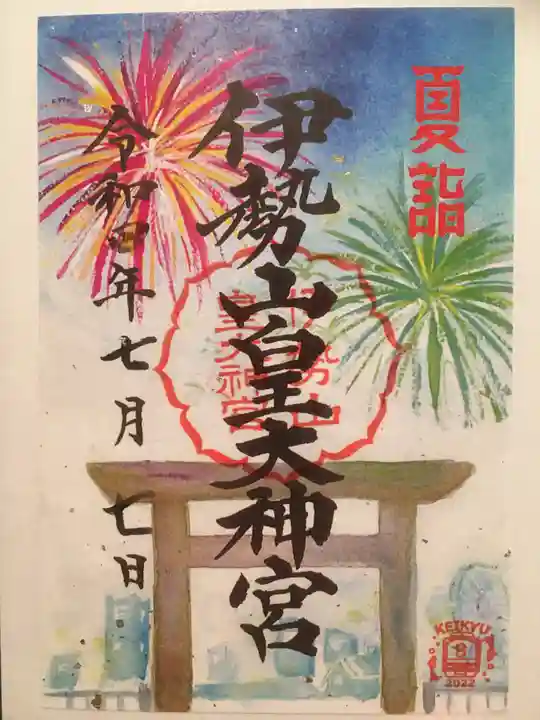 夏詣
伊勢山皇大神宮
伊勢山
皇大神宮
令和四年七月七日
KEIKYU
2022